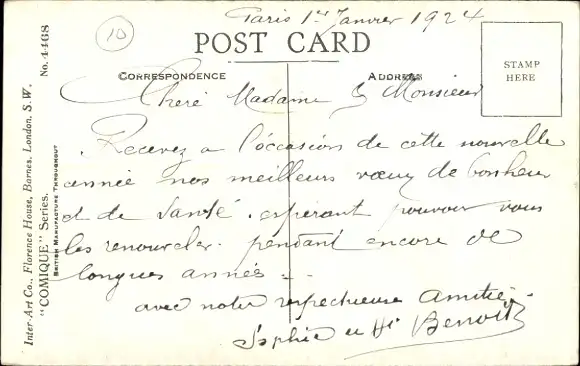 Paris 1er Janvier 1924
10
POST CARD
STAMP
HERE
CORRESPONDENCE
ADDRESS
Cheré Madame & Monsieur
Recevez a l'óccasion de cette nouvelle
année nos meilleurs vœux de bonheur
et de Santé. espérant pouvoir vous
les renouveler. pendant encore de
longues années.
avec notre respectueuse Amitié.
Sophie et Benoit
Inter-Art Co., Florence House, Barnes, London, S.W.
"COMIQUE" Series. No. 4468
BRITISH MANUFACTURE THROUGHOUT